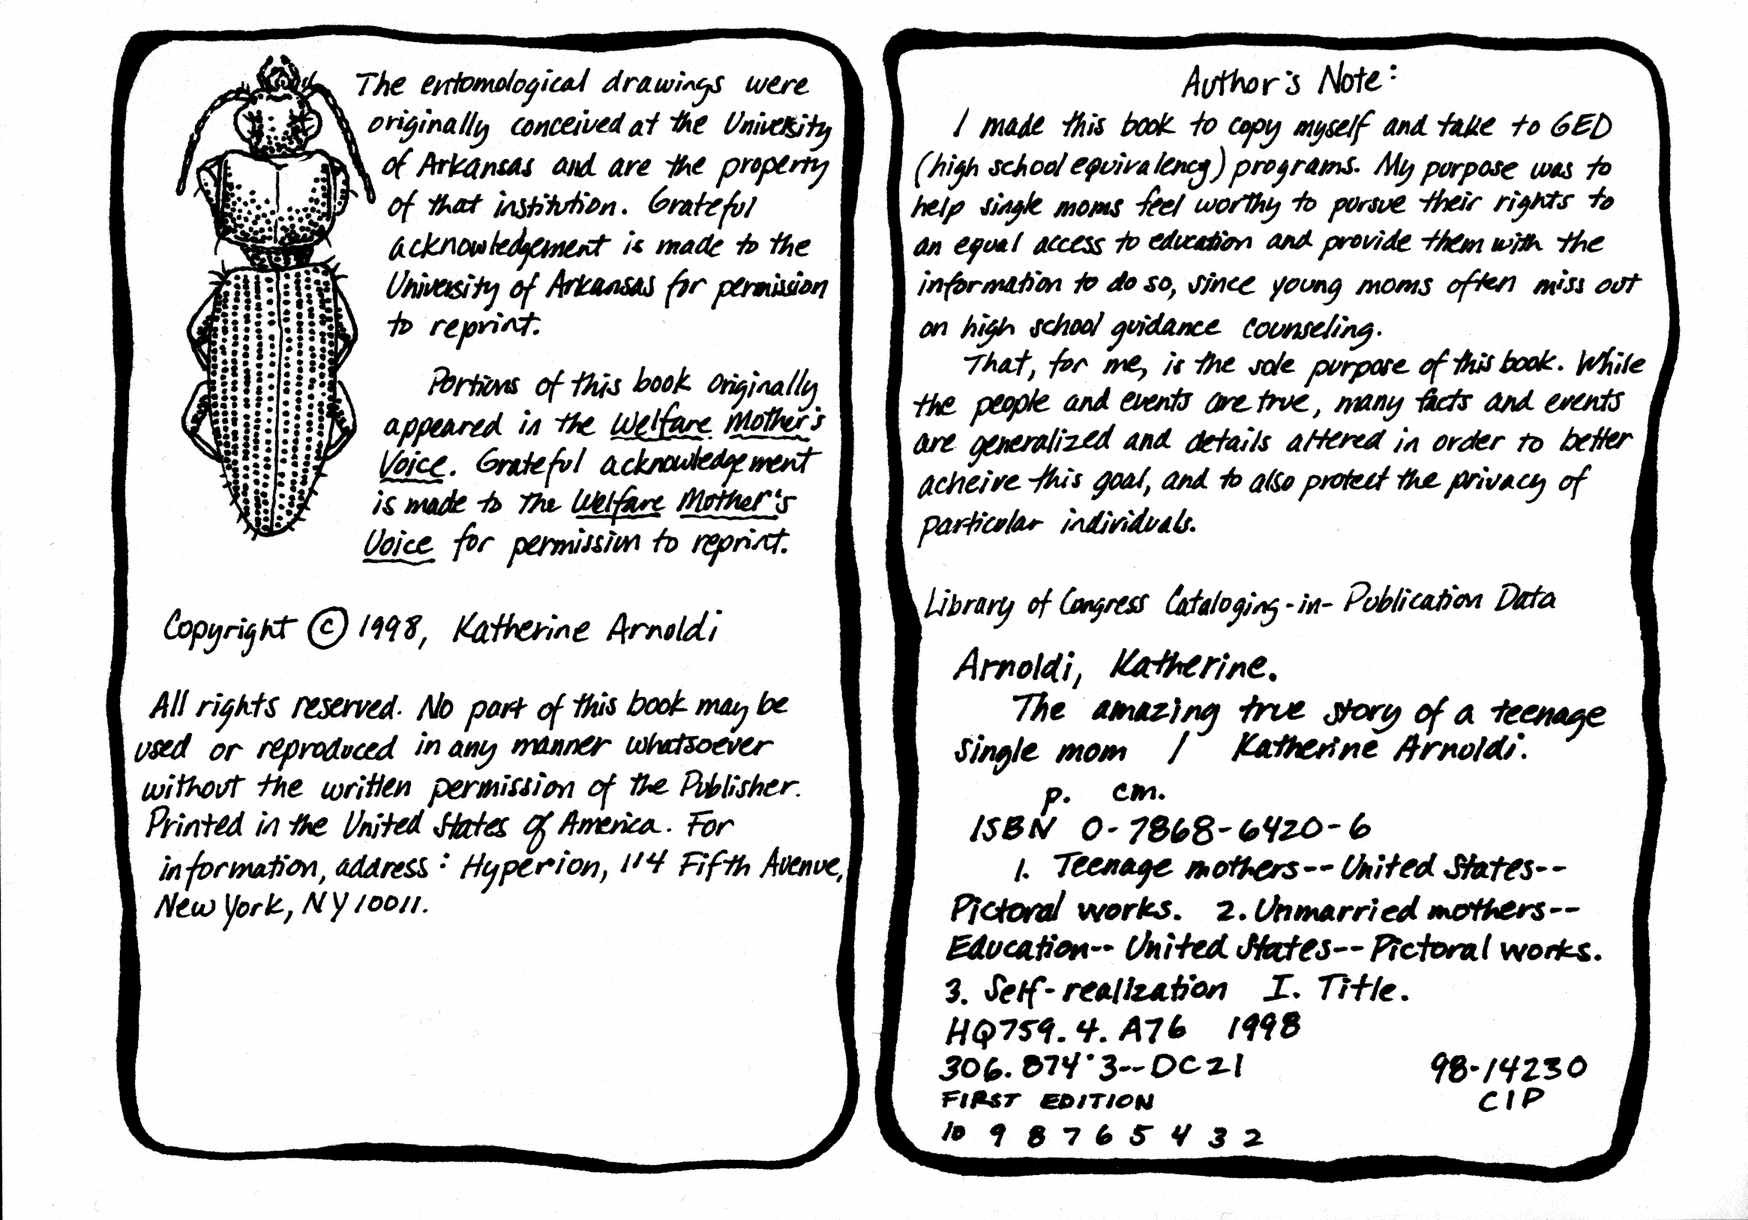 The entomological drawings were
originally conceived at the University
of Arkansas and are the property
of that institution. Grateful
acknowledgement is made to the
University of Arkansas for permission
to reprint.
Portions of this book originally
appeared in the Welfare Mother's
Voice. Grateful acknowledgement
is made to the Welfare Mother's
Voice for permission to reprint.
Copyright © 1998, Katherine Arnoldi
All rights reserved. No part of this book may be
used or reproduced in any manner whatsoever
without the written permission of the Publisher.
Printed in the United States of America. For
information, address: Hyperion, 114 Fifth Avenue,
New York, NY 10011.
Author's Note:
I made this book to copy myself and take to GED
(high school equivalency) programs. My purpose was to
help single moms feel worthy to pursue their rights to
an equal access to education and provide them with the
information to do so, since young moms often miss out
on high school guidance counseling.
That, for me, is the sole purpose of this book. While
the people and events are true, many facts and events
are generalized and details altered in order to better
acheive this goal, and to also protect the privacy of
particular individuals.
Library of Congress Cataloging-in-Publication Data
Arnoldi, Katherine.
The amazing true story of a teenage
single mom / Katherine Arnoldi.
p. cm.
ISBN 0-7868-6420-6
1. Teenage mothers--United States--
Pictoral works. 2. Unmarried mothers--
Education--United States--Pictoral works.
3. Self-realization I. Title.
HQ759.4.A76 1998
306.874'3--DC21 98-14230
FIRST EDITION CIP
10 9 8 7 6 5 4 3 2